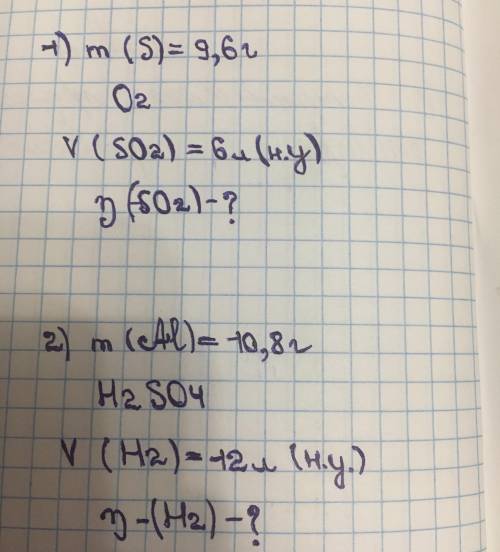 1) m (S) = 9,6г
O2
V (SO2) = 6л (н.у)
η (SO2) - ?
2) m (Al) = 10,8г
H2SO4
V (H2) = 12л (н.у.)
η - (H2) - ?